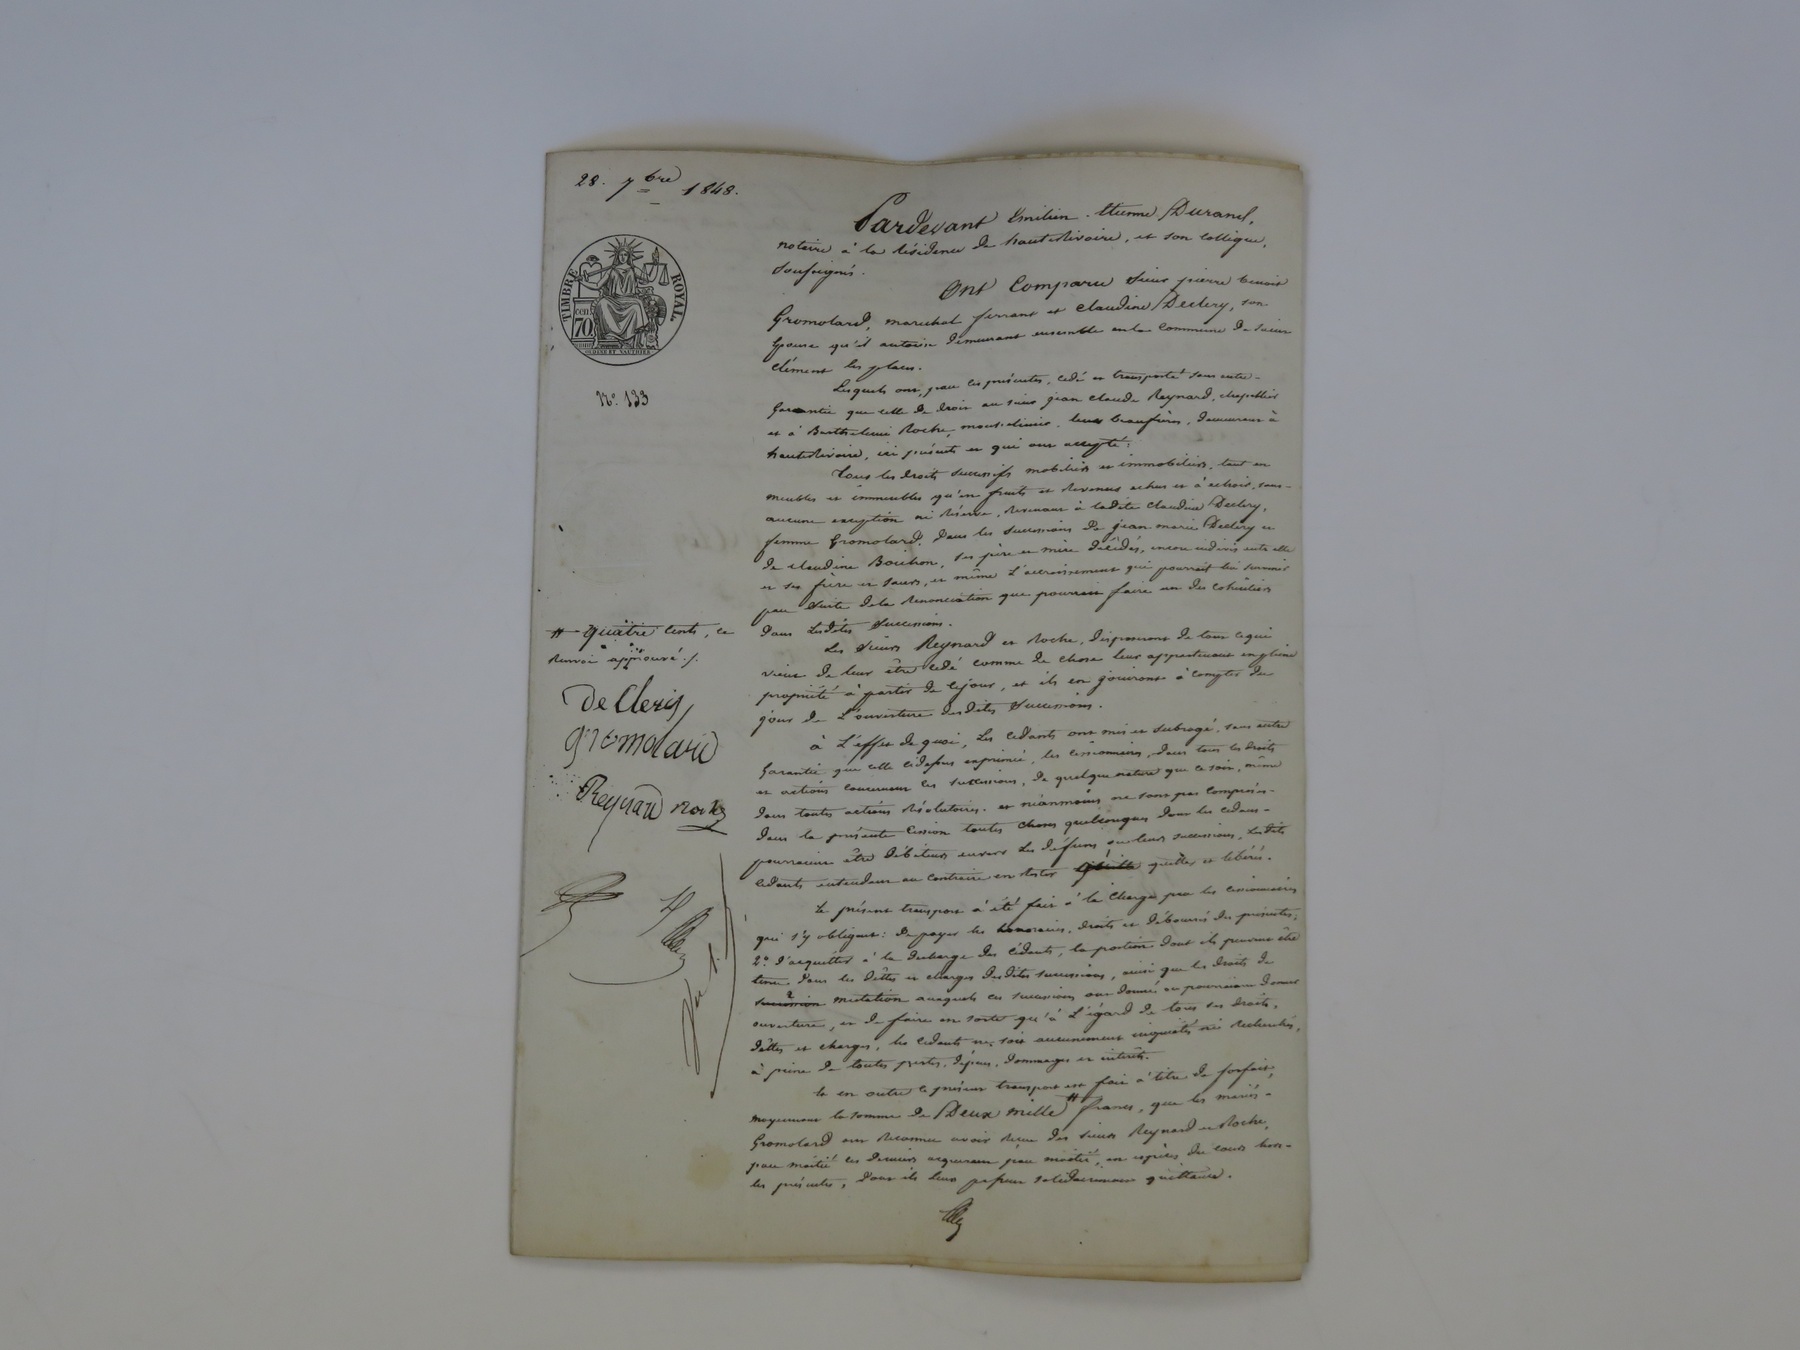 28. 7bre 1848.
TIMBRE ROYAL
cen
70
N°. 133
Pardevant Emilien Etienne Durand,
notaire à la résidence de hauterivoire, et son collègue,
soussignés.
Ont Comparu Sieur pierre benoit
Gromolard, marechal ferrant et claudine Declery, son
Epouse qu'il autorise demeurant ensemble en la Commune de Saint
clément les places.
Lesquels ont, par ces présentes, cédé et transporté sans autre
Garantie que celle de droit au sieur jean claude Reynard, chapellier
et à Barthelemi Roche, leurs beaufrères, demeurant à
hauterivoire, ici présents et qui ont accepté:
Tous les droits successifs mobiliers et immobiliers, tant en
meubles et immeubles qu'en fruits et revenus echus et à echoir, sans
aucune exception ni réserve, revenant à ladite claudine Declery,
femme Gromolard, dans les successions de jean marie Declery et
de claudine Bouchon, ses père et mère décédés, encore indivis entre elle
et ses frère et sœurs, et même l'accroissement qui pourrait lui survenir
par suite de la renonciation que pourrait faire un des cohéritiers
dans lesdites successions.
Les sieurs Reynard et Roche, disposeront de tout ce qui
vient de leur être cédé comme de chose leur appartenant en pleine
propriété à partir de ce jour, et ils en jouiront à compter du
jour de l'ouverture desdites successions.
à L'effet de quoi, Les cédants ont mis et subrogé, sans autre
Garantie que celle cidessus exprimée, les cessionnaires, dans tous les droits
et actions concernant ces successions, de quelque nature que ce soit, même
dans toutes actions résolutoires. et néanmoins ne sont pas comprises
dans la présente Cession toutes choses quelconques dont les cédants
pourraient être débiteurs envers les défunts ou leurs successions, Lesdits
cédants entendant au contraire en rester quittes et libérés.
Le présent transport à été fait à la Charge par les cessionnaires
qui s'y obligent: de payer les honoraires, droits et déboursés des présentes;
2°. d'acquitter à la decharge des cédants, la portion dont ils peuvent être
tenus dans les dettes et charges desdites successions, ainsi que les droits de
succession mutation auxquels ces successions ont donné ou pourraient donner
ouverture, et de faire en sorte qu'à L'égard de tous ces droits,
dettes et charges, les cédants ne soit aucunement inquiétés ni recherchés,
à peine de toutes pertes, dépens, dommages et intérêts.
Et en outre le présent transport est fait à titre de forfait,
moyennant la somme de Deux mille # francs, que les mariés
Gromolard ont reconnu avoir reçue des sieurs Reynard et Roche,
par moitié ces derniers acquérant par moitié, en espèces du cours hors
les présentes, dont ils leur passent solidairement quittance.
# quatre cents, ce
Renvoi approuvé ./.
De Clery
gromolard
Reynard roche